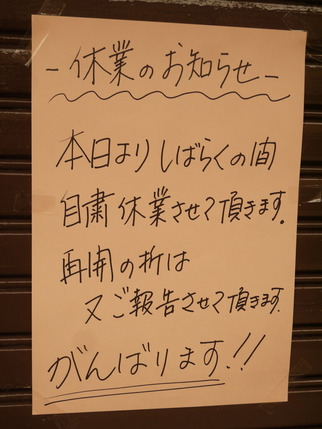 -休業のお知らせ-
本日よりしばらくの間
自粛休業させて頂きます。
再開の折は
又ご報告させて頂きます。
がんばります!!